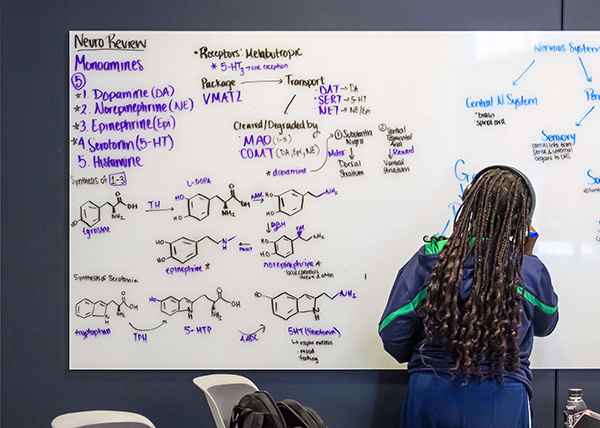 Neuro Review
Monoamines
5
* 1. Dopamine (DA)
* 2. Norepinephrine (NE)
* 3. Epinephrine (Epi)
* 4. Serotonin (5-HT)
5. Histamine
• Receptors: Metabotropic
* 5-HT3 → one exception
Package → Transport
VMAT2
DAT → DA
SERT → 5-HT
NET → NE/Epi
Created/Degraded by
MAO (1-5)
COMT (DA, Epi, NE)
* dopamine
① Substantia
Nigra
Motor ↓
Dorsal
Striatum
② Ventral
Tegmental
Area
↓ Reward
Ventral
Striatum
Synthesis of 1-3
tyrosine
TH
L-DOPA
AADC
DBH
norepinephrine *
PNMT
epinephrine *
Synthesis of Serotonin
tryptophan
TPH
5-HTP
AADC
5HT (Serotonin)
↳ raphe nucleus
• mood
feeding
Nervous System
Central N. System
• brain
spinal cord
Sensory